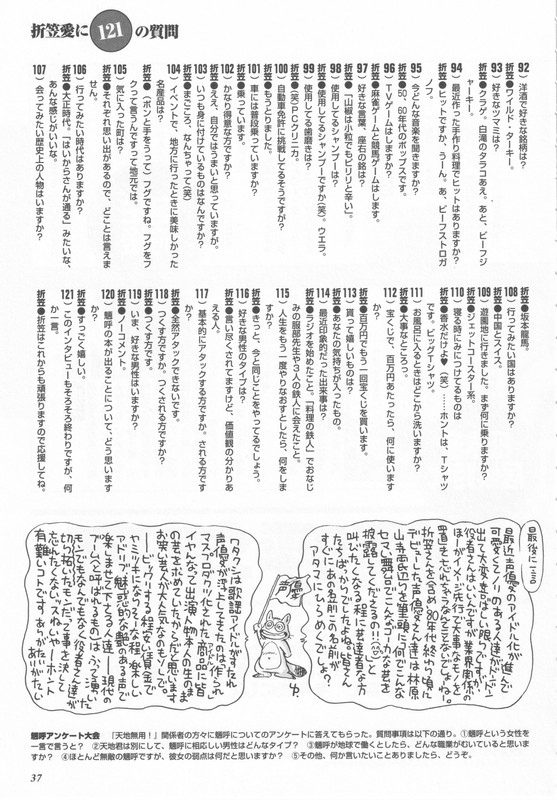 折笠愛に121の質問
92 洋酒で好きな銘柄は?
折笠●ワイルド・ターキー。
93 好きなツマミは?
折笠●クラゲ。白滝のタラコあえ。あと、ビーフジャーキー。
94 最近作った手作り料理でヒットはありますか?
折笠●ヒットですか、うーん。あ、ビーフストロガノフ。
95 今どんな音楽を聞きますか?
折笠●50、60年代のポップスです。
96 TVゲームはしますか?
折笠●麻雀ゲームと競馬ゲームはします。
97 好きな言葉、座右の銘は?
折笠●「山椒は小粒でもピリリと辛い」。
98 使用してるシャンプーは?
折笠●使用してるシャンプーですか(笑)。ウエラ。
99 使用してる歯磨きは?
折笠●(笑)PCクリニカ。
100 自動車免許に挑戦してるそうですが?
折笠●もうとりました。
101 車には普段乗っていますか?
折笠●乗っています。
102 かなり得意な方ですか?
折笠●ええ、自分ではうまいと思っていますが。
103 いつも身に付けているものはなんですか?
折笠●まごころ、なんちゃって(笑)
104 イベントで、地方に行ったときに美味しかった名産品は?
折笠●(ポンと手をうって)フグですね。フグをフクって言うんですって地元では。
105 気に入った町は?
折笠●それぞれ思い出があるので、どことは言えません。
106 行ってみたい時代はありますか?
折笠●大正時代。「はいからさんが通る」みたいな、あんな感じがいいな。
107 会ってみたい歴史上の人物はいますか?
折笠●坂本龍馬。
108 行ってみたい国はありますか?
折笠●中国とスイス。
109 遊園地に行きました。まず何に乗りますか?
折笠●ジェットコースター系。
110 寝る時にみにつけてるものは
折笠●香水だけよ♥(笑)……ホントは、Tシャツです。ビッグTシャツ。
111 お風呂に入るときはどこから洗いますか?
折笠●大事なところっ。
112 宝くじで、百万円あたったら、何に使いますか?
折笠●百万円でもう一回宝くじを買います。
113 貰って嬉しいものは?
折笠●あなたの気持ちが入ったもの。
114 最近印象的だった出来事は?
折笠●ラジオを始めたこと。「料理の鉄人」でおなじみの服部先生や3人の鉄人に会えたこと。
115 人生をもう一度やりなおすとしたら、何をしますか?
折笠●きっと、今と同じことをやってるでしょう。
116 好きな男性のタイプは?
折笠●言い尽くされてますけど、価値観の分かりあえる人。
117 基本的にアタックする方ですか。される方ですか?
折笠●全然アタックできないです。
118 つくす方ですか。つくされる方ですか?
折笠●つくす方です。
119 いま、好きな男性いますか?
折笠●ノーコメント。
120 魎呼の本が出ることについて、どう思いますか?
折笠●すっごく嬉しい。
121 このインタビューもそろそろ終わりですが、何か一言。
折笠●折笠はこれからも頑張りますので応援してね。
最後に一言
最近声優のアイドル化が進んで
可愛くてノリのある人達がドンドン
出て大変喜ばしい限りですが、
役者さんはいいんですが業界関係の
ほーがイメージ先行で大事なモノを
置き忘れそうなんてことないでしょーね。
折笠さんを含め80年代終わり頃に
デビューした声優さん達は林原
山寺両巨頭を筆頭に何でこんな
セマい舞台でこんなゴーカな芸を
披露してくださるの!!と
叫びたくなる程に芸達者な方
たちばっかでしたよね。皆さん
すぐにあの名前この名前が
アタマにひらめくでしょ?
声優
「オタク」は歌謡アイドルがすたれ
声優が浮上してきたのは、作られ
マスプロダクツ化された「商品」に皆
イヤんなって出演人物本人の生のまま
の芸を求めていたからだと思います
お笑い芸人が大人気なのもソレで。
ビックリする程安い賃金で
ヤミツキになっちゃう程、楽しい
アドリブ、魅惑的な艶のある声で
楽しませて下さる人達――現代の
ブームと呼ばれるものは、ふって湧いた
モンでもなんでもなく役者さん達が
切り拓いたモンだって事を決して
忘れたくないっスねいやーホント
有難いコトです。ありがたいがたい
魎呼アンケート大会 「天地無用!」関係者の方々に魎呼についてのアンケートに答えてもらった。質問事項は以下の通り。①魎呼という女性を
一言で言うと? ②天地君は別にして、魎呼に相応しい男性はどんなタイプ? ③魎呼が地球で働くとしたら、どんな職業がむいていると思いま
すか? ④ほとんど無敵の魎呼ですが、彼女の弱点は何だと思いますか? ⑤その他、何か言いたいことありましたら、どうぞ。
37